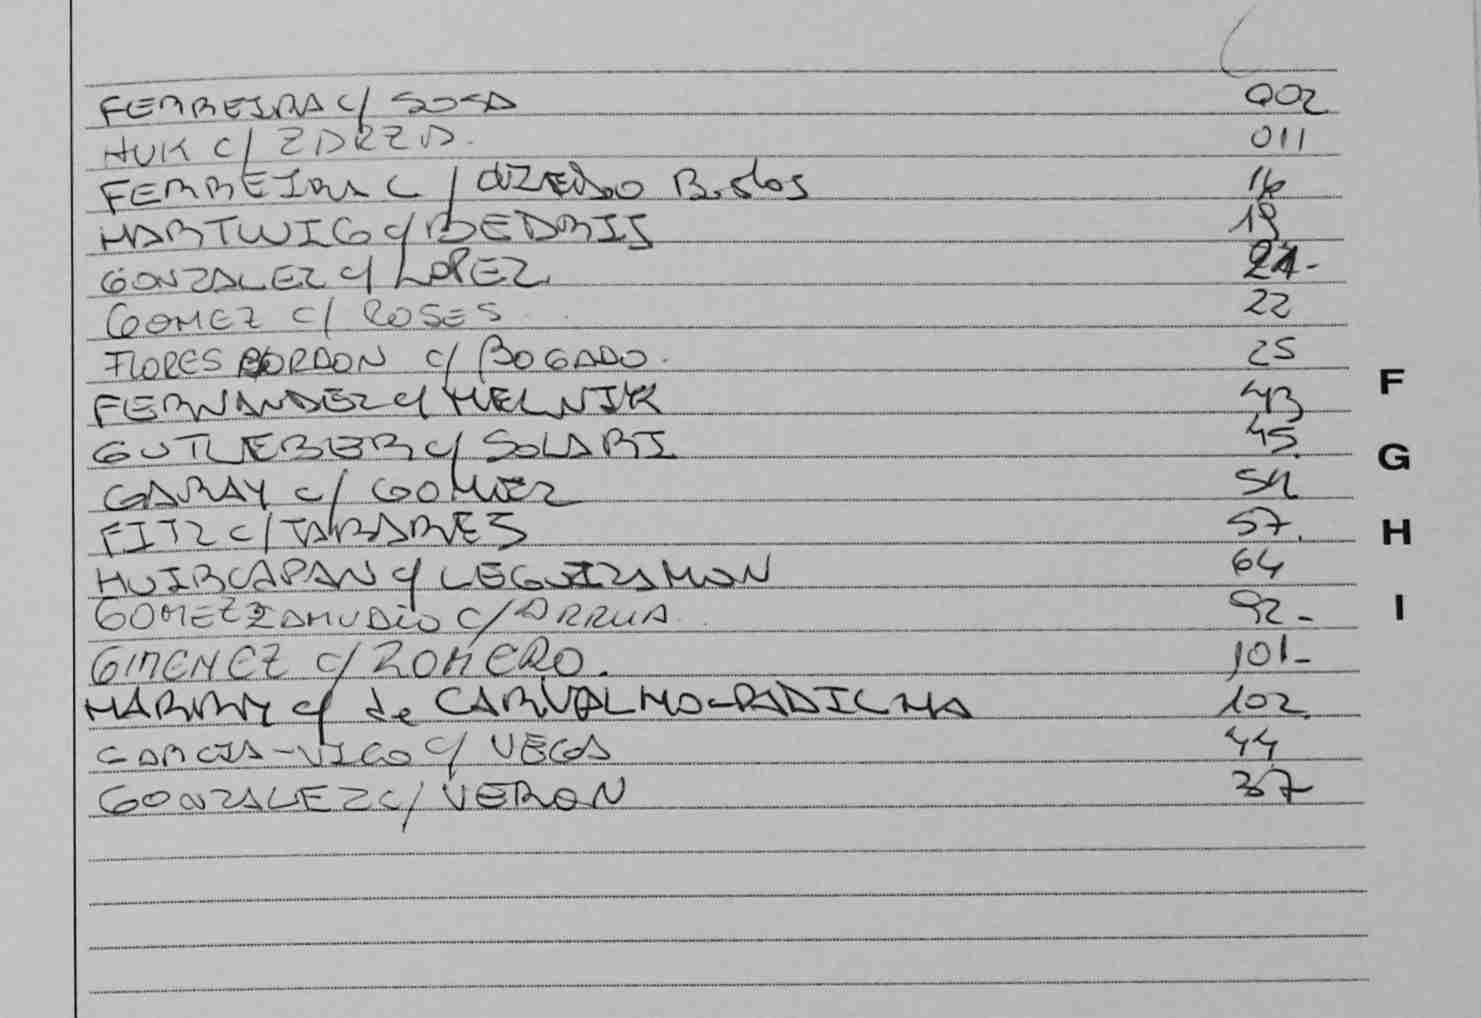 FERREIRA c/ SOSA 002
HUK c/ ZARZA. 011
FERREIRA c/ Bastos 16
HARTWIG c/ BEDRIJ 19
GONZALEZ c/ LOPEZ 21-
GOMEZ c/ ROSES 22
FLORES BORDON c/ BOGADO. 25
FERNANDEZ c/ MELNIK 43
GUTLEBER c/ SOLARI 45
GARAY c/ GOMEZ 54
FITZ c/ TABARES 57.
HUIRCAPAN c/ LEGUIZAMON 64
GOMEZ ZAMUDIO c/ ARRUA. 92-
GIMENEZ c/ ROMERO. 101-
HARRAY c/ de CARVALHO-RADICHA 102
GARCIA-VIGO c/ VEGA 44
GONZALEZ c/ VERON 37
F
G
H
I